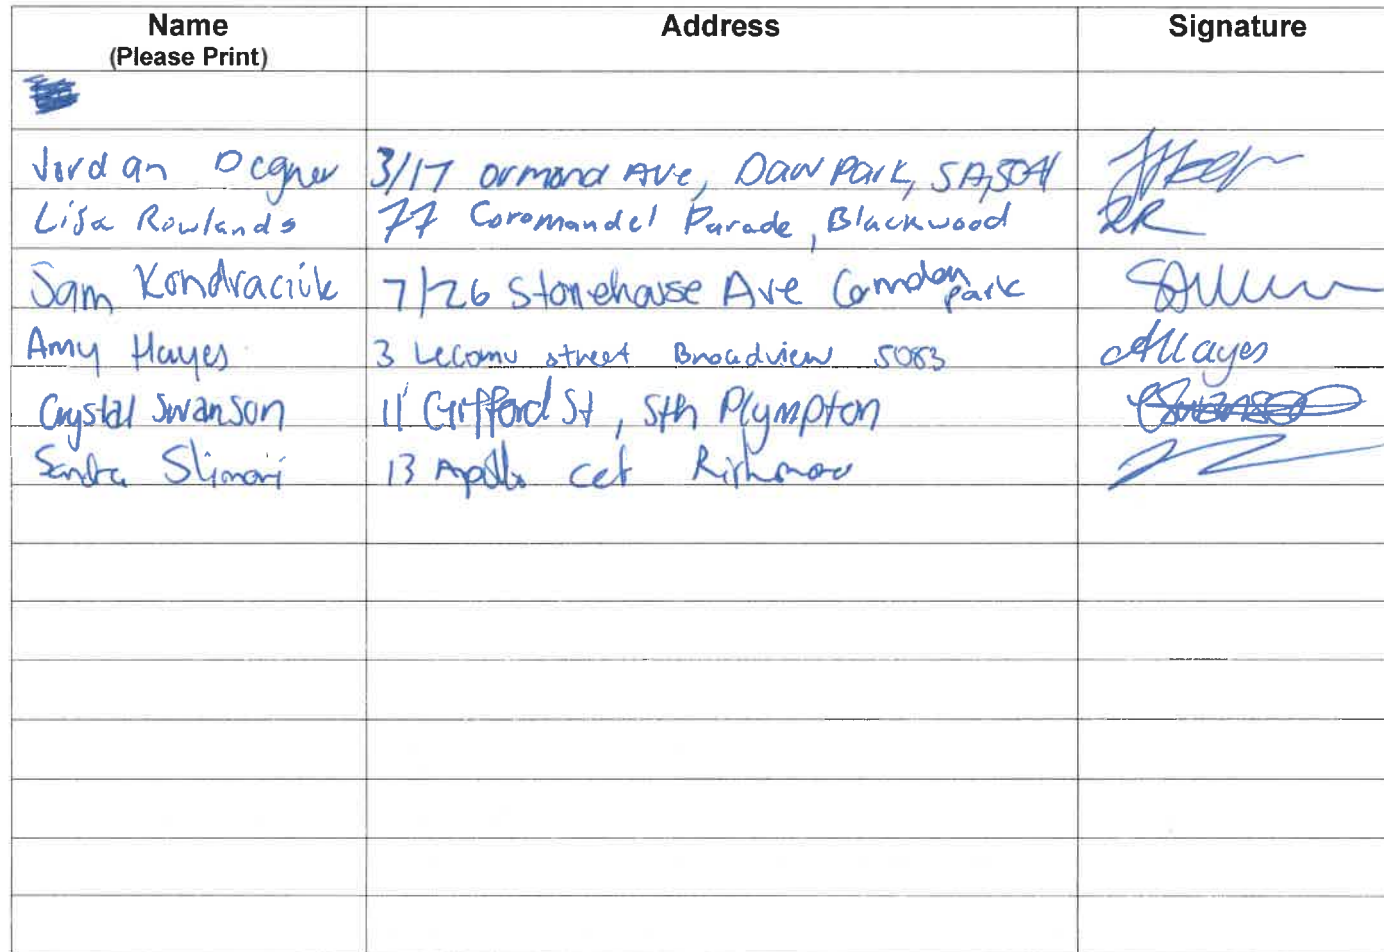 Name Address Signature
(Please Print)
Jordan Degner 3/17 Ormond Ave, Daw Park, SA, 5041
Lisa Rowlands 77 Coromandel Parade, Blackwood LR
Sam Kondraciuk 7/26 Stonehouse Ave Camden Park
Amy Hayes 3 street Broadview 5083 AHayes
Crystal Swanson 11 Gifford St, Sth Plympton
Sandra Slimani 13 Apollo Richmond